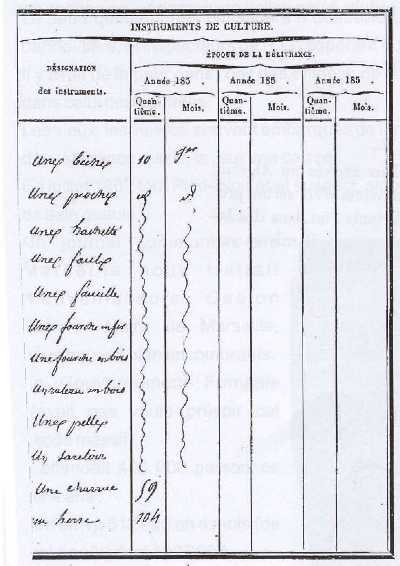 INSTRUMENTS DE CULTURE.
ÉPOQUE DE LA DÉLIVRANCE.
DÉSIGNATION
des instruments.
Année 185 Année 185 Année 185
Quan-tième. Mois. Quan-tième. Mois. Quan-tième. Mois.
Une 10 9bre
Une pioche id id
Une hachette
Une faulx
Une faucille
Une fourche en fer
Une fourche en bois
Un rateau en bois
Une pelle
Un sarcloir
Une charrue 59
une herse 104